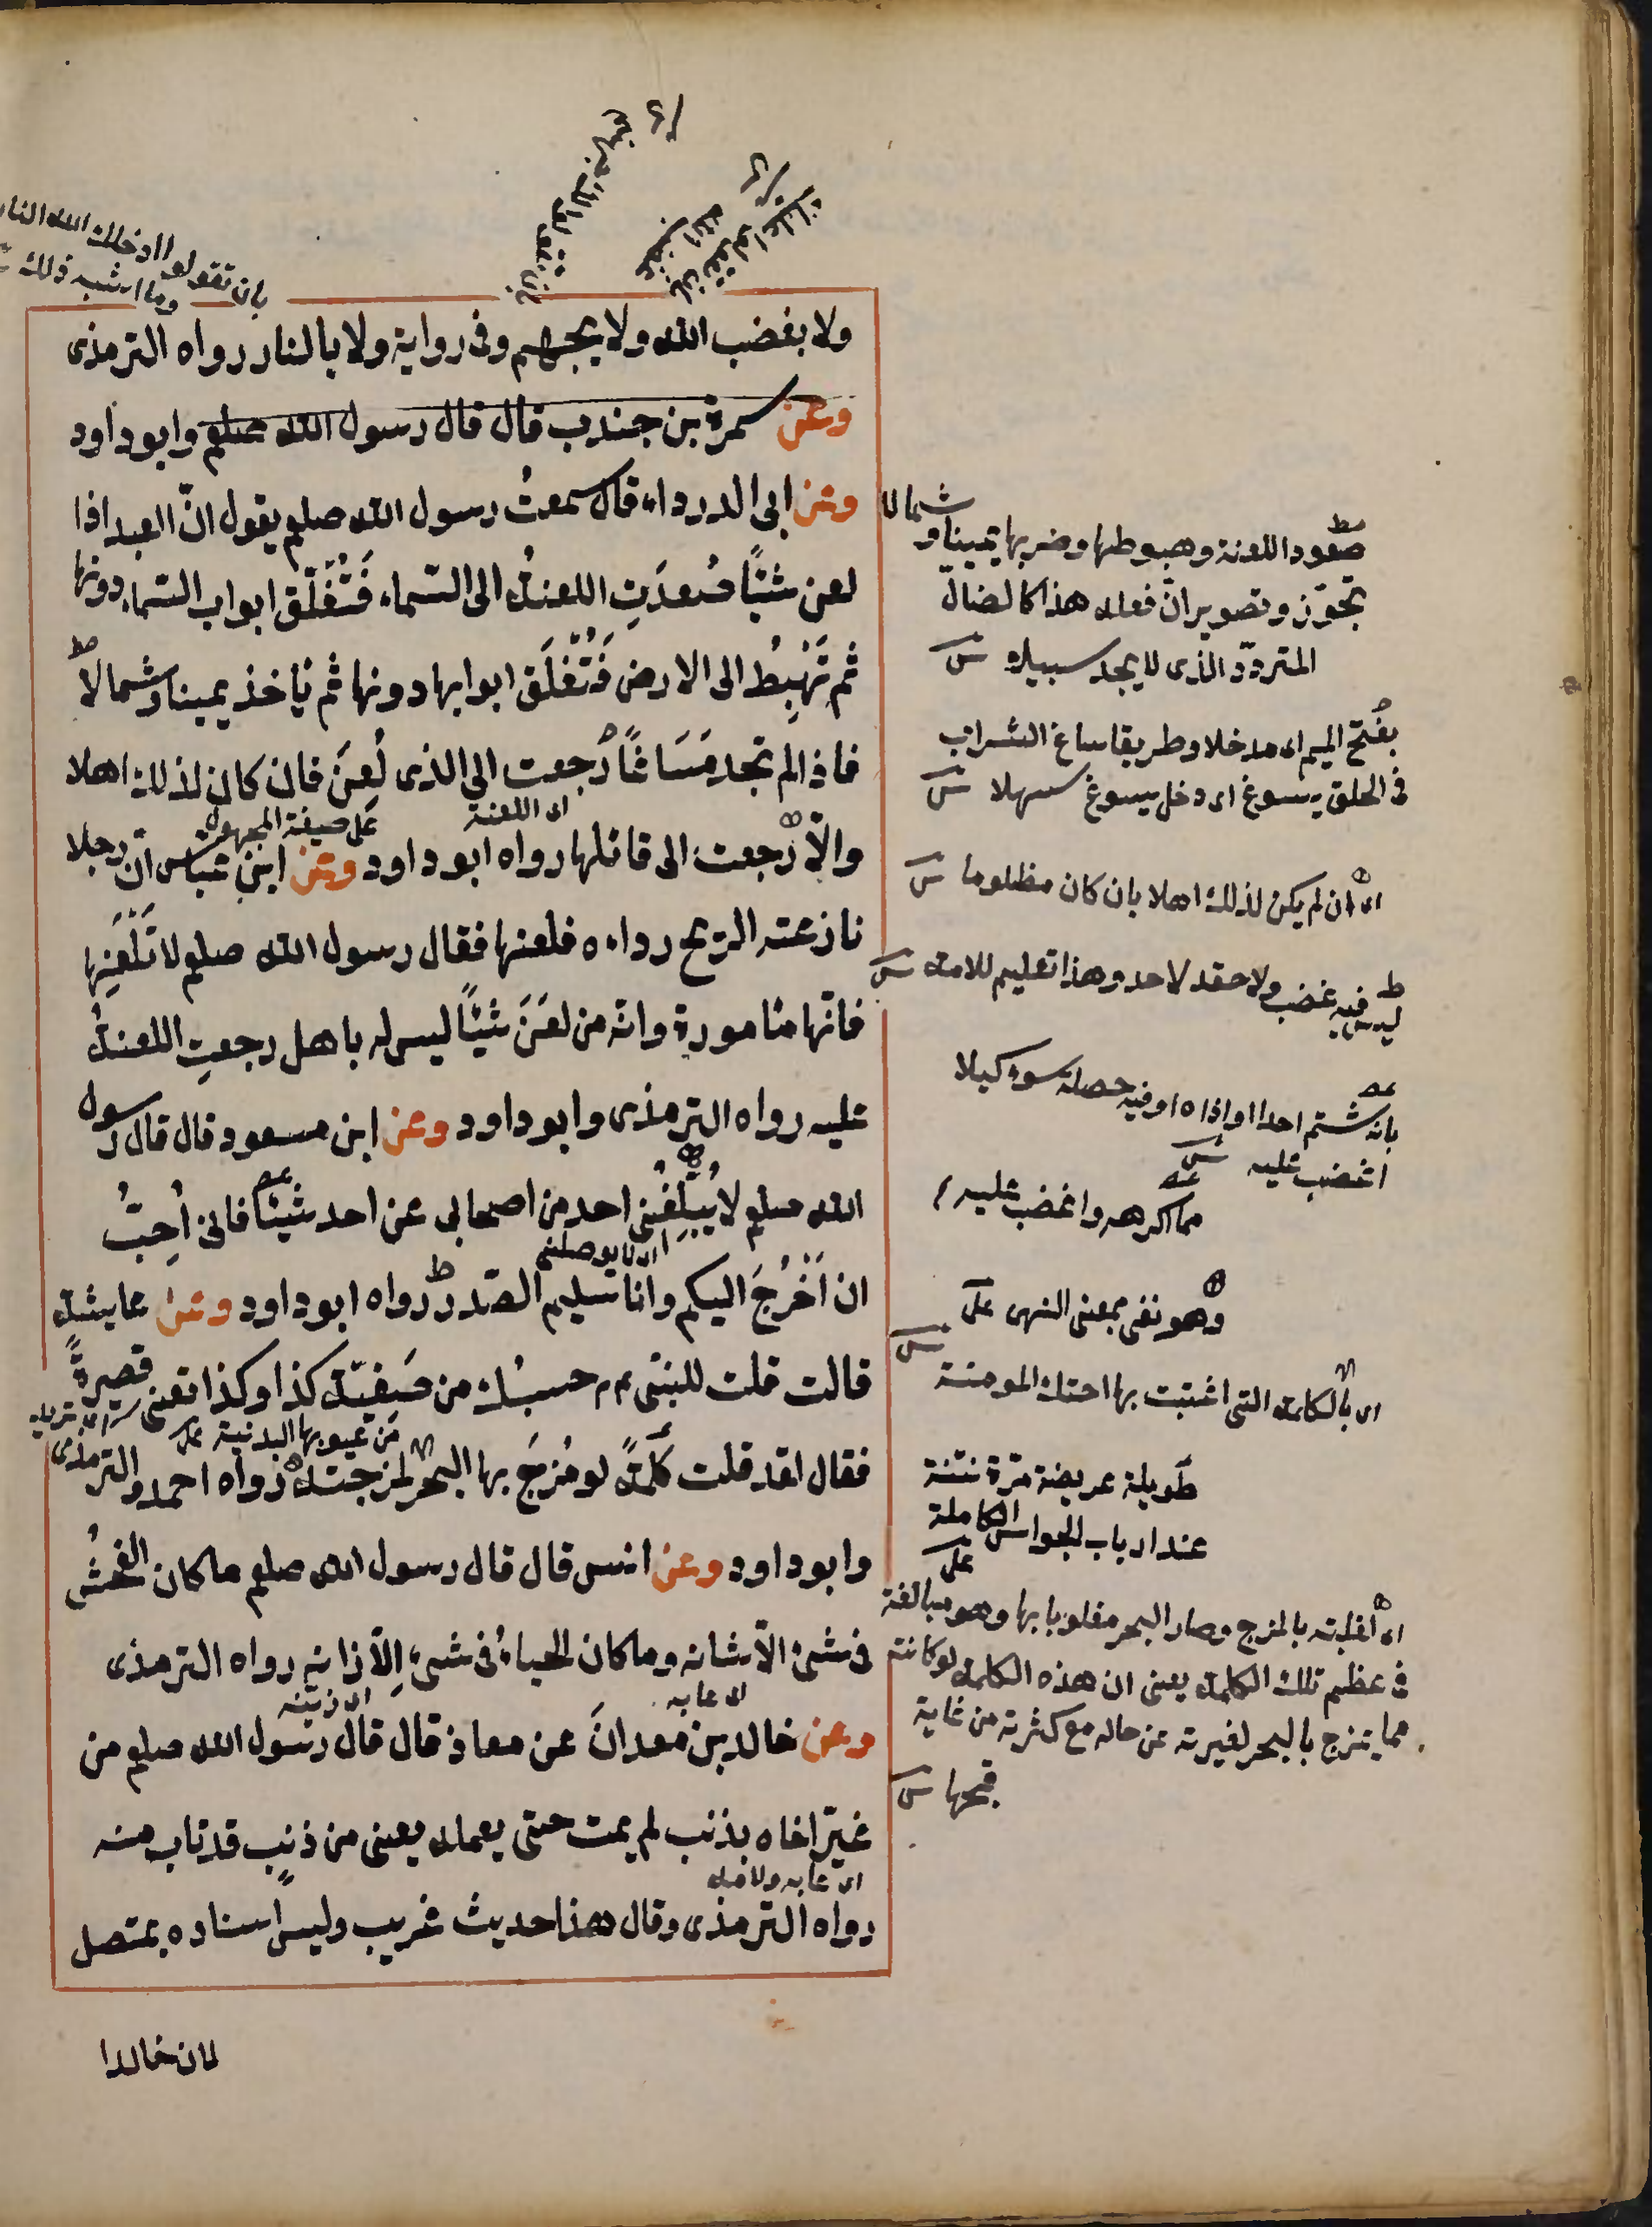 بان تقولوا ادخلك الله النار
وما اشبه ذلك
ولا بغضب الله ولا بجهنم وفى رواية ولا بالنار رواه الترمذى
وعن سمرة بن جندب قال قال رسول الله صلعم وابو داود
وعن ابى الدرداء قال سمعتُ رسول الله صلعم يقول انّ العبد اذا
لعن شئيًا صُعدَتِ اللعنةُ الى السّماء فَتُغَلّق ابواب السّماء دونها
ثم تَهْبِطُ الى الارض فَتُغْلَق ابوابها دونها ثم تأخذ يمينا وشمالًا
فاذا لم تجد مَسَاغًا رجعت الى الذى لُعِنَ فان كان لذلك اهلا
اى اللعنة
على صيغة المجهول
والّا رجعت الى قائلها رواه ابو داود وعن ابن عباس انّ رجلا
نازعته الريح رداءه فلعنها فقال رسول الله صلعم لا تَلْعَنِها
فانّها مأمورة وانّه من لعَنَ شيئًا ليس له باهل رجعتِ اللعنةُ
عليه رواه الترمذى وابو داود وعن ابن مسعود قال قال رسول
الله صلعم لا يُبَلّغُنى احد من اصحابى عن احد شيئًا فانى اُحِبُّ
اى لا يوصلنى
ان اَخْرُجَ اليكم وانا سليم الصّدر رواه ابو داود وعن عايشة
قالت قلت للنبى عم حسبُك من صَفيّة كذا وكذا تعنى قصيرةً
من عيوبها البدنية على
فقال لقد قلت كلمةً لو مُزِجَ بها البحر لمزجته رواه احمد والترمذى
وابو داود وعن انس قال قال رسول الله صلعم ما كان الفحشُ
فى شئ الّا شانه وما كان الحياءُ فى شئ اِلّا زانه رواه الترمذى
اى عابه
اى زينه
وعن خالد بن معدانَ عن معاذ قال قال رسول الله صلعم من
غيّر اخاه بذنب لم يمت حتى يعمله يعنى من ذنبٍ قد تاب منه
اى عابه ولامه
رواه الترمذى وقال هذا حديث غريب وليس اسناده بمتصل
لان خالدا
صعود اللعنة وهبوطها وضربها يمينا وشمالا
تجوّز وتصوير انّ فعله هذا كالضالّ
المتردّد الذى لا يجد سبيله
بفتح الميم اى مدخلا وطريقا ساغ الشراب
فى الحلق يسوغ اى دخل يسوغ سهلا
اى ان لم يكن لذلك اهلا بان كان مظلوما
ليس فيه غضب ولا حقد لاحد وهذا تعليم للامة
بانه شتم احدا او اذاه او فيه خصلة سوء كيلا
اغضب عليه
مما اكرهه واغضب عليه
وهو نفى بمعنى النهى على
اى بالكلمة التى اغتبت بها اختك المومنة
طويلة عريضة مرّة نتنة
عند ارباب الحواس الكاملة
على
اى لغلبته بالمزج وصار البحر مغلوبا بها وهو مبالغة
فى عظيم تلك الكلمة يعنى ان هذه الكلمة لو كانت
مما يمزج بالبحر لغيرته عن حاله مع كثرته من غاية
قبحها